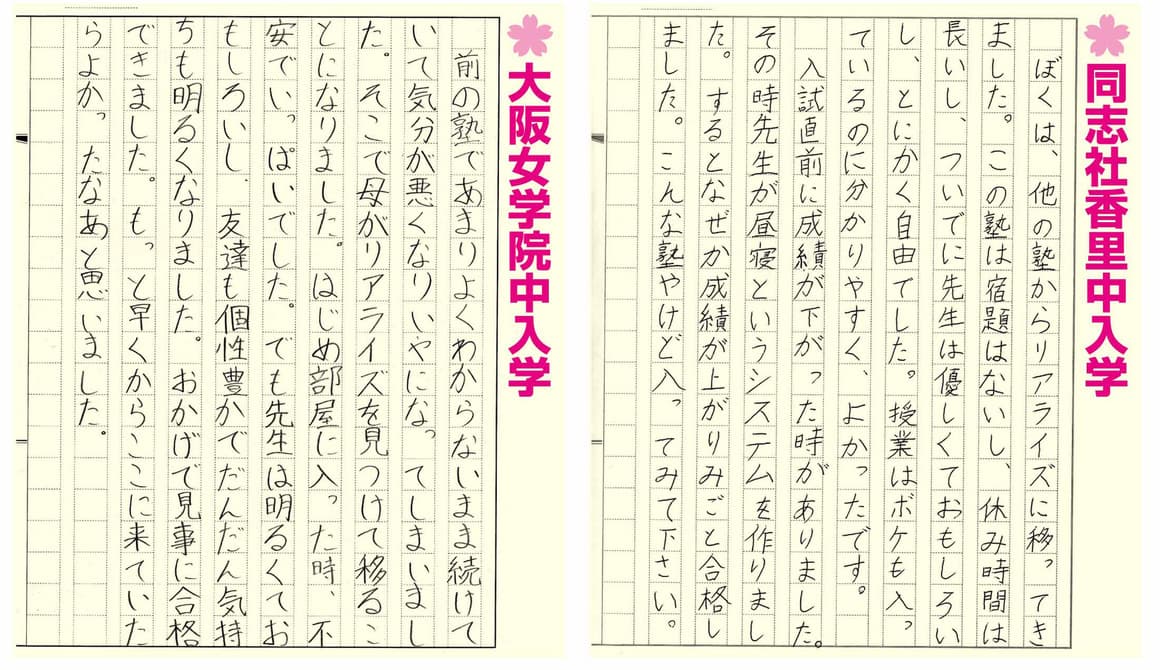 同志社香里中入学
ぼくは、他の塾からリアライズに移ってき
ました。この塾は宿題はないし、休み時間は
長いし、ついでに先生は優しくておもしろい
し、とにかく自由でした。授業はボケも入っ
ているのに分かりやすく、よかったです。
入試直前に成績が下がった時がありました。
その時先生が昼寝というシステムを作りまし
た。するとなぜか成績が上がりみごと合格し
ました。こんな塾やけど入ってみて下さい。
大阪女学院中入学
前の塾であまりよくわからないまま続けて
いて気分が悪くなりいやになってしまいまし
た。そこで母がリアライズを見つけて移るこ
とになりました。はじめ部屋に入った時、不
安でいっぱいでした。でも先生は明るくてお
もしろいし、友達も個性豊かでだんだん気持
ちも明るくなりました。おかげで見事に合格
できました。もっと早くからここに来ていた
らよかったなあと思いました。